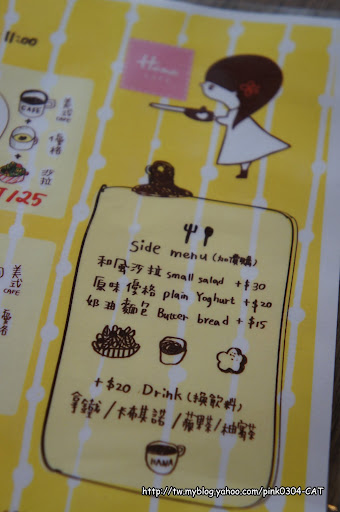 11:00
Hana
CAFE
美式
CAFE
+
優格
+
沙拉
125
美式
CAFE
Side menu (加價購)
和風沙拉 small salad +$30
原味優格 plain Yoghurt +$20
奶油麵包 Butter bread +$15
+$20 Drink (換飲料)
拿鐵/卡布其諾/蘋果茶/柚蜜茶
HANA
http://tw.myblog.yahoo.com/pink0304-CAT